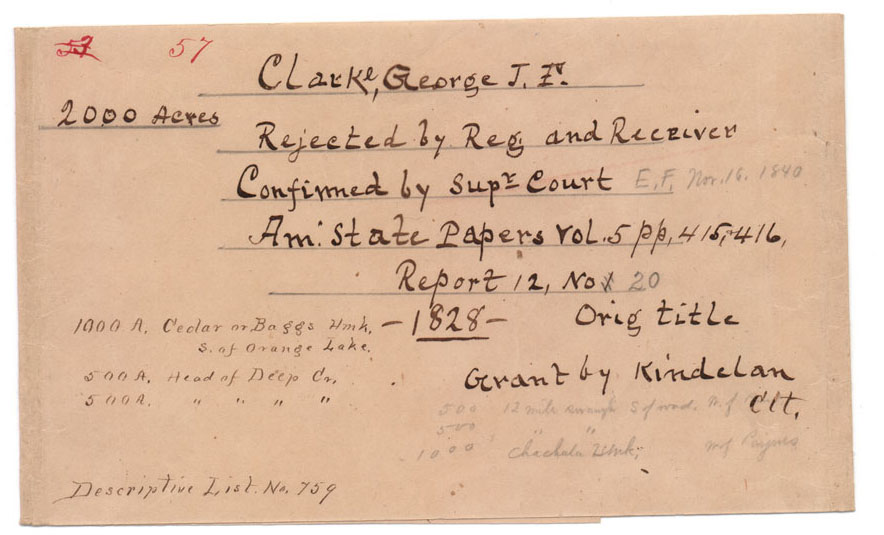 53 57
Clarke, George J. F.
2000 Acres
Rejected by Reg. and Receiver
Confirmed by Supr Court E.F, Nov. 16. 1840
Am: State Papers Vol. 5 pp, 415, 416,
Report 12, No 20
1000 A. Cedar or Baggs Hmk.
S. of Orange Lake.
500 A. Head of Deep Cr,
500 A. " " " "
—1828— Orig title
Grant by Kindelan
Ctt.
500 12 mile swamp S of road.
500 " "
1000 Chachala Hmk,
Descriptive List. No. 759